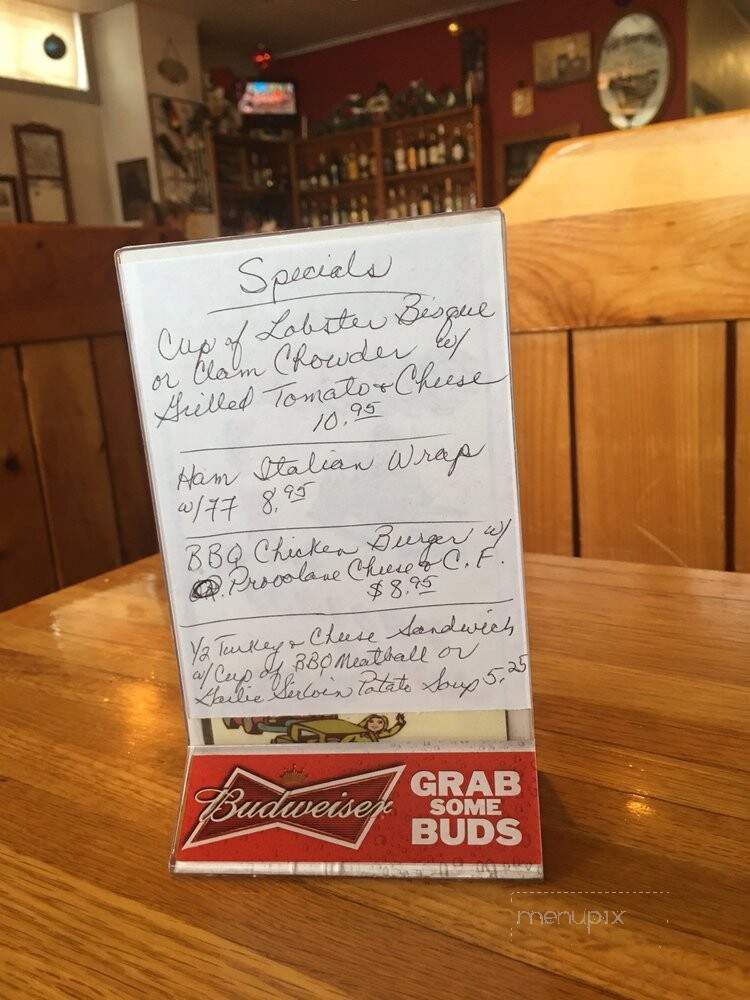 Specials
Cup of Lobster Bisque
or Clam Chowder w/
Grilled Tomato & Cheese
10.95
Ham Italian Wrap
w/77 8.95
BBQ Chicken Burger w/
Provolane Cheese & C.F.
$8.95
1/2 Turkey & Cheese Sandwich
w/ Cup of BBQ Meatball or
Garlic Sirloin Potato Soup 5.25
Budweiser
GRAB
SOME
BUDS
menupix